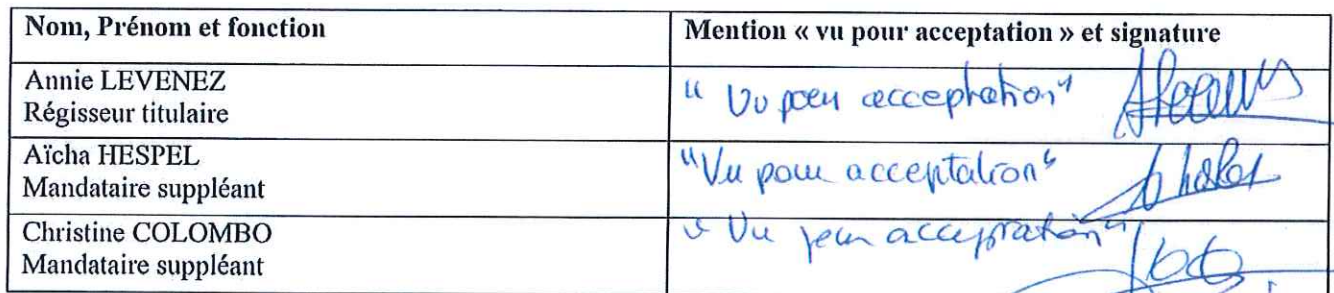 Nom, Prénom et fonction
Mention « vu pour acceptation » et signature
Annie LEVENEZ
Régisseur titulaire
"Vu pour acceptation"
Aïcha HESPEL
Mandataire suppléant
"Vu pour acceptation"
Christine COLOMBO
Mandataire suppléant
"Vu pour acceptation"